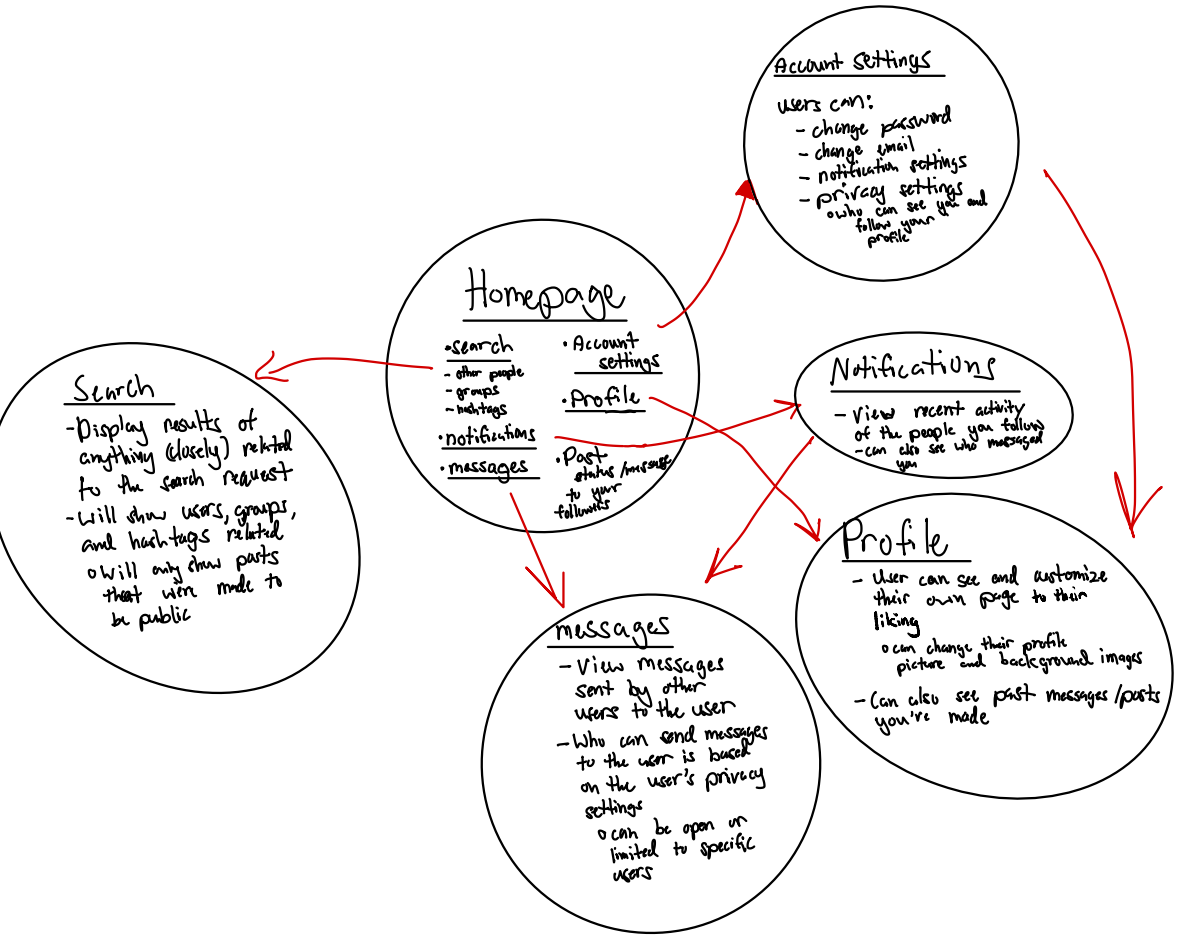 Account settings
users can:
- change password
- change email
- notification settings
- privacy settings
o who can see you and
follow your
profile
Homepage
• search
- other people
- groups
- hashtags
• notifications
• messages
• Account
settings
• Profile
• Post
status/message
to your
followers
Search
- Display results of
anything (closely) related
to the search request
- Will show users, groups,
and hashtags related
o will only show posts
that were made to
be public
Notifications
- View recent activity
of the people you follow
- can also see who messaged
you
Profile
- User can see and customize
their own page to their
liking
o can change their profile
picture and background images
- Can also see past messages/posts
you're made
messages
- View messages
sent by other
users to the user
- Who can send messages
to the user is based
on the user's privacy
settings
o can be open or
limited to specific
users